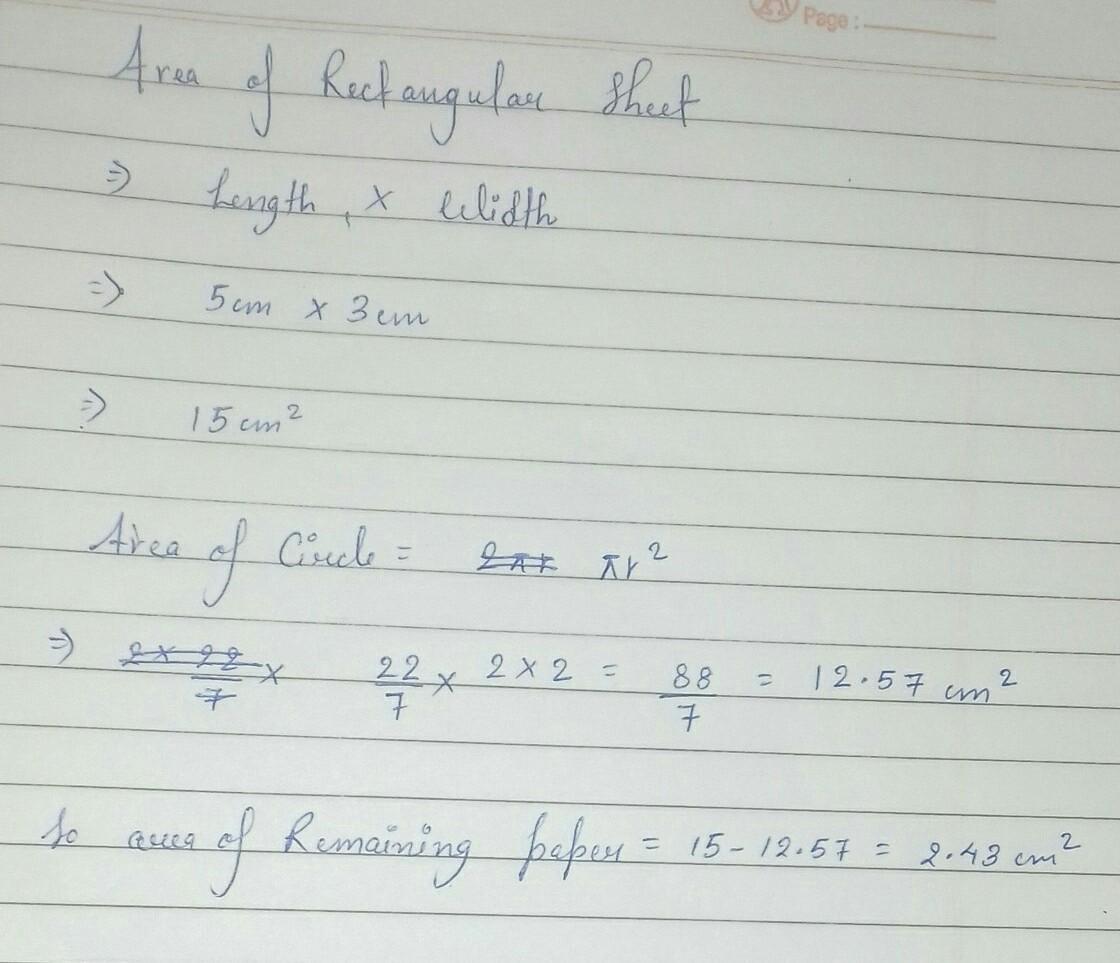 Page :
Area of Rectangular Sheet
⇒ Length × Width
⇒ 5cm × 3cm
⇒ 15cm²
Area of Circle = 2πr πr²
⇒ 2×22/7 × 22/7 × 2×2 = 88/7 = 12.57 cm²
So area of Remaining paper = 15-12.57 = 2.43 cm²